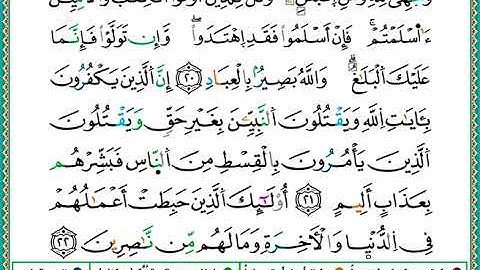 وَجْهِىَ لِلَّهِ وَمَنِ ٱتَّبَعَنِ ۗ وَقُل لِّلَّذِينَ أُوتُوا۟ ٱلْكِتَـٰبَ وَٱلْأُمِّيِّـۧنَ
ءَأَسْلَمْتُمْ ۚ فَإِنْ أَسْلَمُوا۟ فَقَدِ ٱهْتَدَوا۟ ۖ وَّإِن تَوَلَّوْا۟ فَإِنَّمَا
عَلَيْكَ ٱلْبَلَـٰغُ ۗ وَٱللَّهُ بَصِيرٌۢ بِٱلْعِبَادِ ٢٠ إِنَّ ٱلَّذِينَ يَكْفُرُونَ
بِـَٔايَـٰتِ ٱللَّهِ وَيَقْتُلُونَ ٱلنَّبِيِّـۧنَ بِغَيْرِ حَقٍّ وَيَقْتُلُونَ
ٱلَّذِينَ يَأْمُرُونَ بِٱلْقِسْطِ مِنَ ٱلنَّاسِ فَبَشِّرْهُم
بِعَذَابٍ أَلِيمٍ ٢١ أُو۟لَـٰٓئِكَ ٱلَّذِينَ حَبِطَتْ أَعْمَـٰلُهُمْ
فِى ٱلدُّنْيَا وَٱلْـَٔاخِرَةِ وَمَا لَهُم مِّن نَّـٰصِرِينَ ٢٢